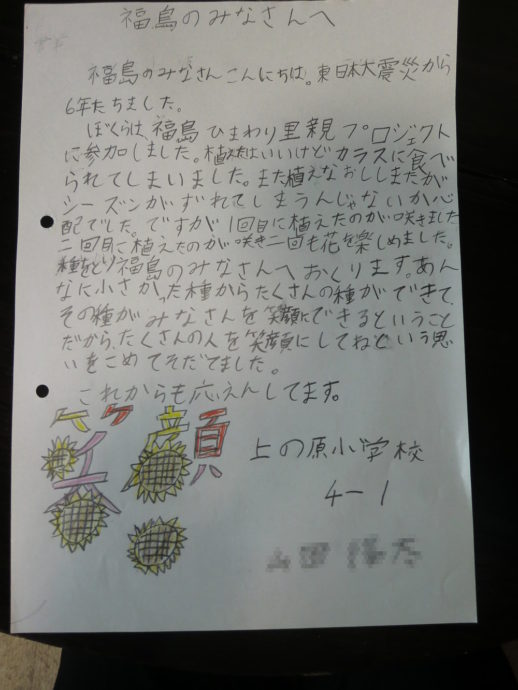 福島のみなさんへ
福島のみなさんこんにちは。東日本大震災から
6年たちました。
ぼくらは、福島ひまわり里親プロジェクト
に参加しました。植えたはいいけどカラスに食べ
られてしまいました。また植えなおししましたが
シーズンがずれてしまうんじゃないか心
配でした。ですが1回目に植えたのが咲きました
二回目に植えたのが咲き二回も花を楽しめました。
種をとり福島のみなさんへおくります。あん
なに小さかった種からたくさんの種ができて、
その種がみなさんを笑顔にできるということ
だから、たくさんの人を笑顔にしてねという思
いをこめてそだてました。
これからも応えんしてます。
笑顔
上の原小学校
4-1